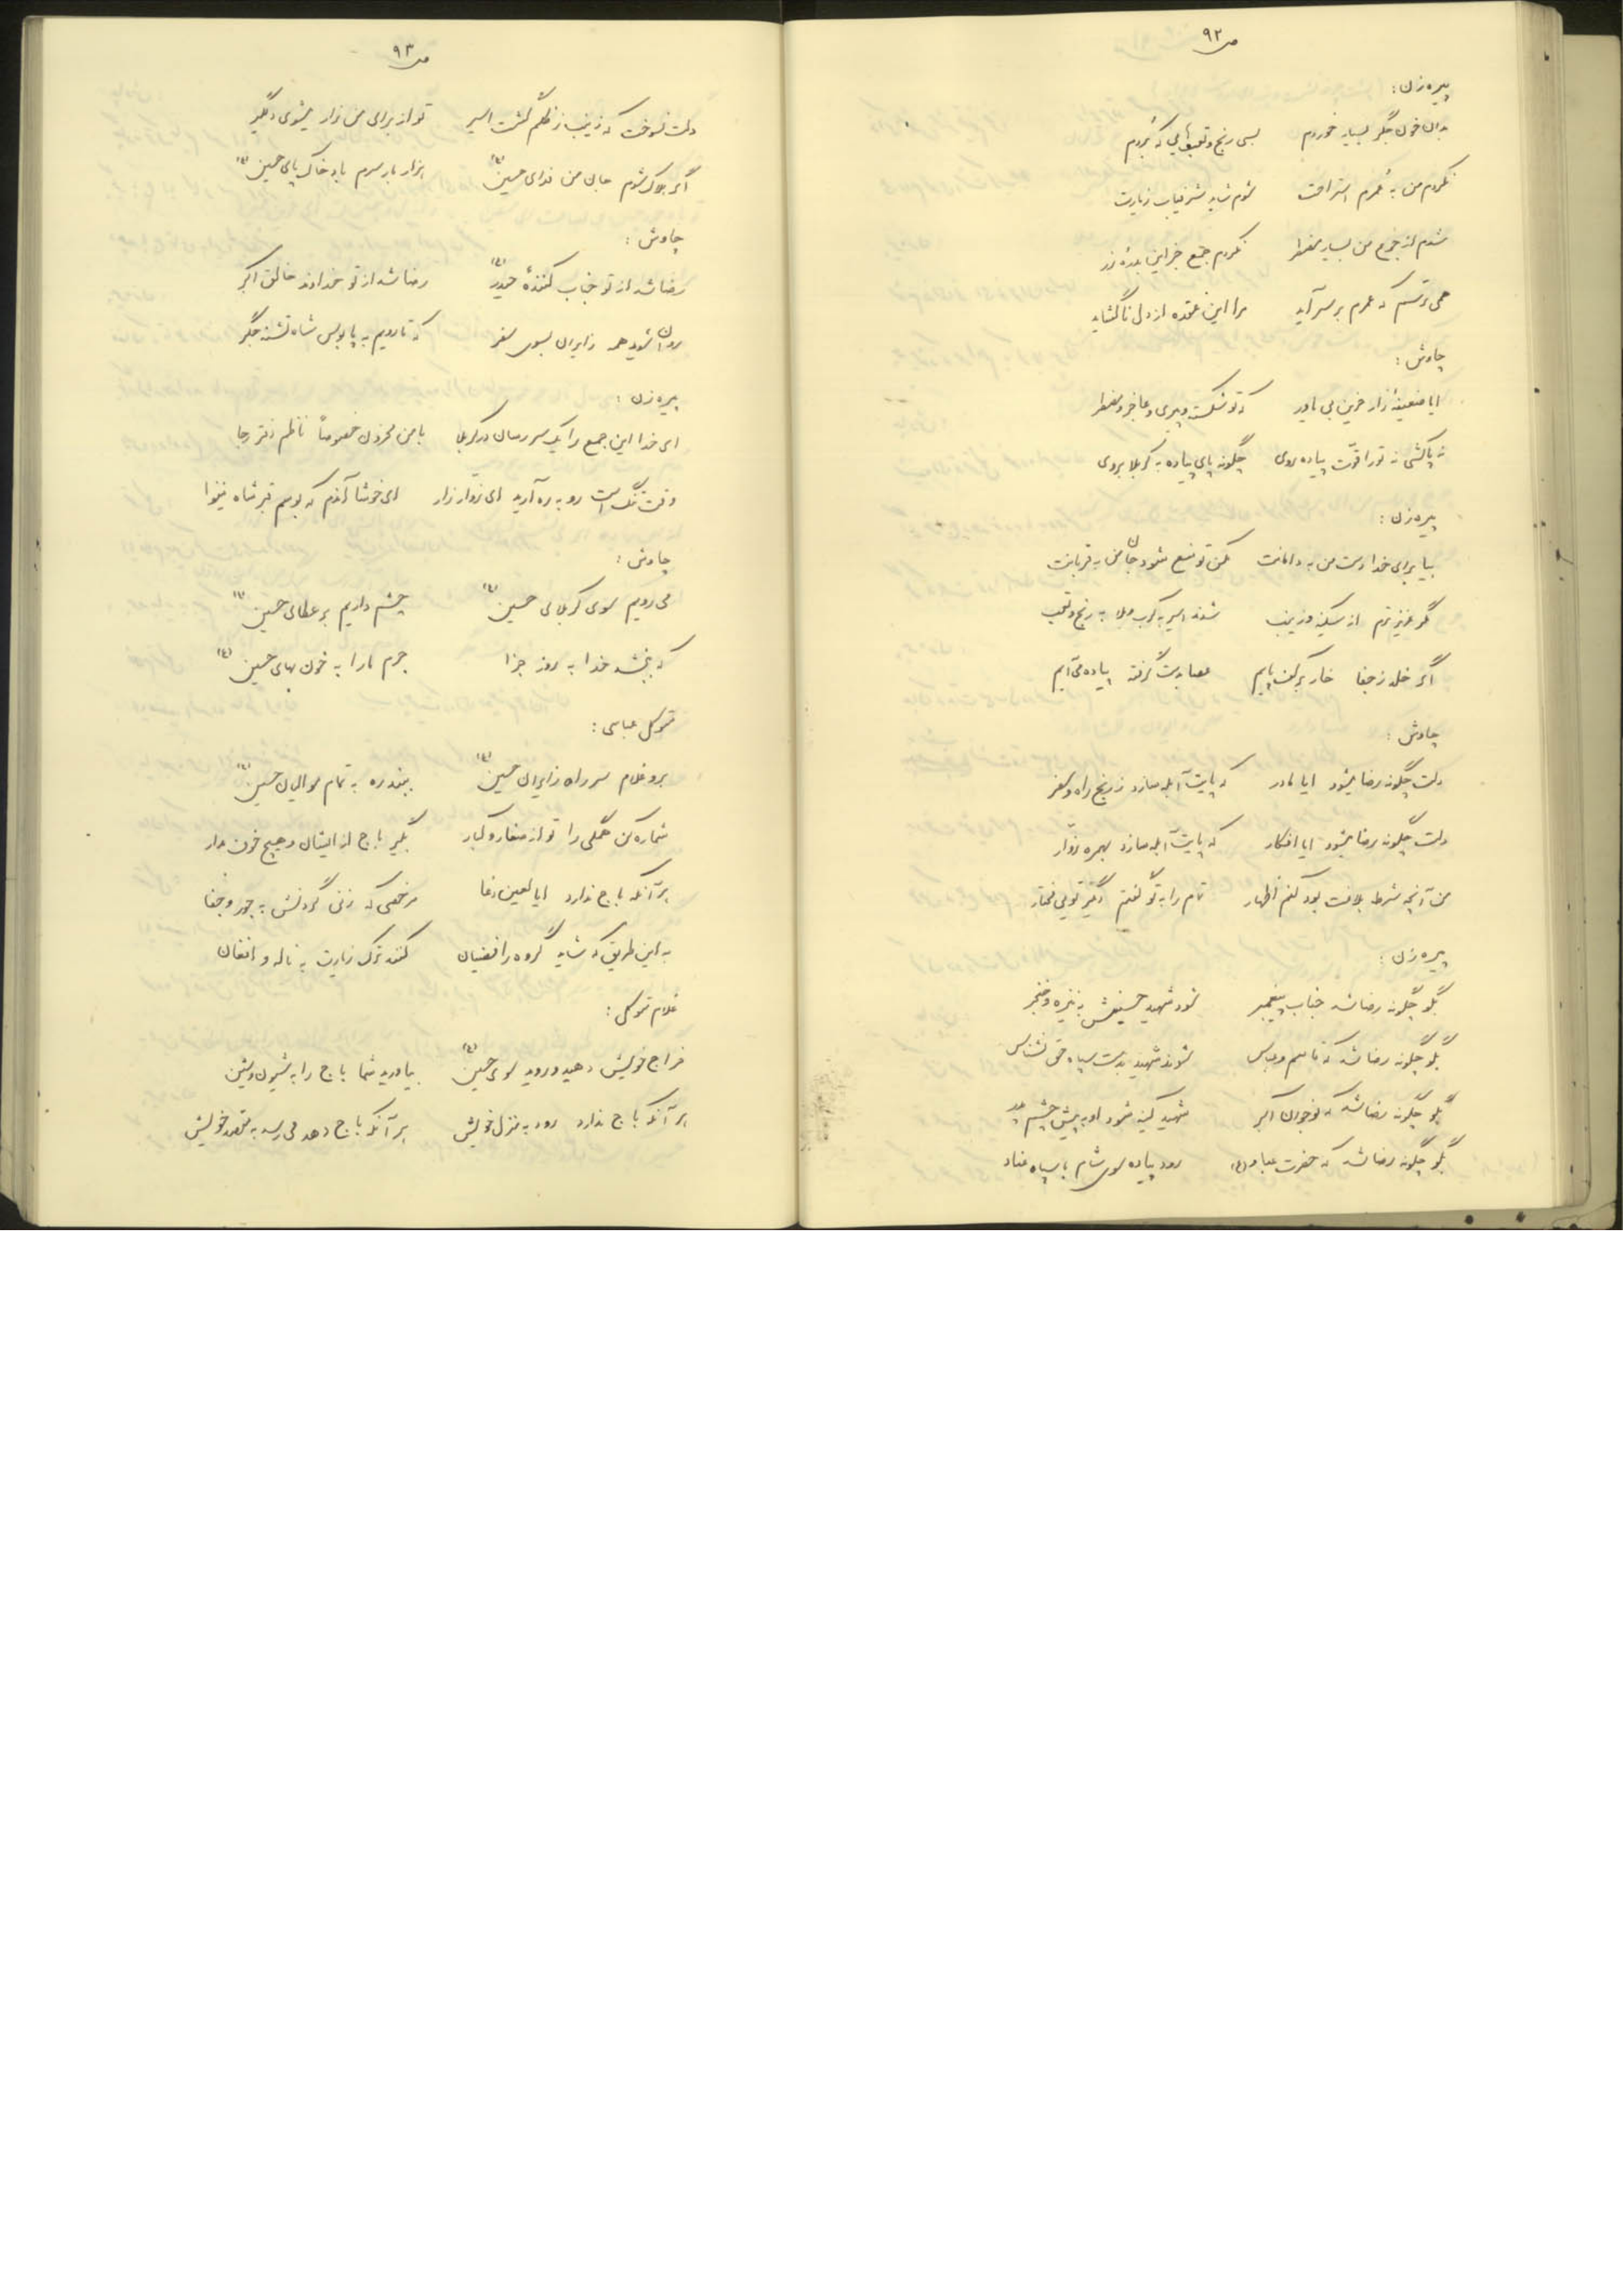 ص ۹۲
پیره زن :
بدان خون جگر بسیار خوردم    بسی رنج و تعب هایی که بردم
نکردم من به عمرم استراحت    شوم شاید شرفیاب زیارت
شدم از خرج من بسیار مضطر    نکردم جمع جز این بدره زر
همی ترسم که عمرم بر سر آید    مرا این عقده از دل ناگشاید
چاوش :
ایا ضعیفه زار حزین بی یاور    که تو شکسته و پیری و عاجز و مضطر
نه پاکشی نه تو را قوت پیاده روی    چگونه پای پیاده به کربلا بروی
پیره زن :
بیا برای خدا دست من به دامانت    مکن تو منع شود جان من به قربانت
مگر عزیزترم از سکینه و زینب    شدند اسیر به کرب و بلا به رنج و تعب
اگر خلد ز جفا خار بر کف پایم    عصا بدست گرفته پیاده می آیم
چاوش :
دلت چگونه رضا میشود ایا مادر    که پایت آبله سازد ز رنج راه و سفر
دلت چگونه رضا میشود ایا افکار    که پایت آبله سازد بهمره زوّار
من آنچه شرط بلاغت بود کنم اظهار    تمام را به تو گفتم دگر تویی مختار
پیره زن :
بگو چگونه رضا شد جناب پیغمبر    شود شهید حسینش به نیزه و خنجر
بگو چگونه رضا شد که قاسم و عباس    شوند شهید بدست سپاه حق نشناس
بگو چگونه رضا شد که نوجوان اکبر    شهید کینه شود او به پیش چشم پدر
بگو چگونه رضا شد که حضرت عباد (ع)    رود پیاده سوی شام با سپاه عناد
ص ۹۳
دلت نسوخت که زینب ز ظلم گشت اسیر    تو از برای من زار میشوی دلگیر
اگر هلاک شوم جان من فدای حسین (ع)    هزار بار سرم باد خاک پای حسین (ع)
چاوش :
رضا شد از تو جناب کننده حیدر (ع)    رضا شد از تو خداوند خالق اکبر
روان شوید همه زایران بسوی سفر    که تا رویم به پابوس شاه تشنه جگر
پیره زن :
ای خدا این جمع را یکسر رسان در کربلا    با من محزون خصوصاً ناظم دفتر رجا
وقت تنگ است رو به ره آرید ای زوّار زار    ای خوشا آندم که بوسم قبر شاه نینوا
چاوش :
می رویم سوی کربلای حسین (ع)    چشم داریم بر عطای حسین (ع)
که ببخشد خدا به روز جزا    جرم ما را به خون بهای حسین (ع)
متوکل عباسی :
برو غلام سر راه زایران حسین (ع)    ببند ره به تمام موالیان حسین (ع)
شماره کن همگی را تو از صغار و کبار    بگیر باج از ایشان و هیچ خوف مدار
هر آنکه باج ندارد ایا لعین دغا    مرخصی که زنی گردنش به جور و جفا
به این طریق که شاید گروه رافضیان    کنند ترک زیارت به ناله و افغان
غلام متوکل :
خراج خویش دهید و روید سوی حسین (ع)    بیاورید شما باج را به شیون و شین
هر آنکه باج ندارد رود به منزل خویش    هر آنکه باج دهد می رسد به مقصد خویش